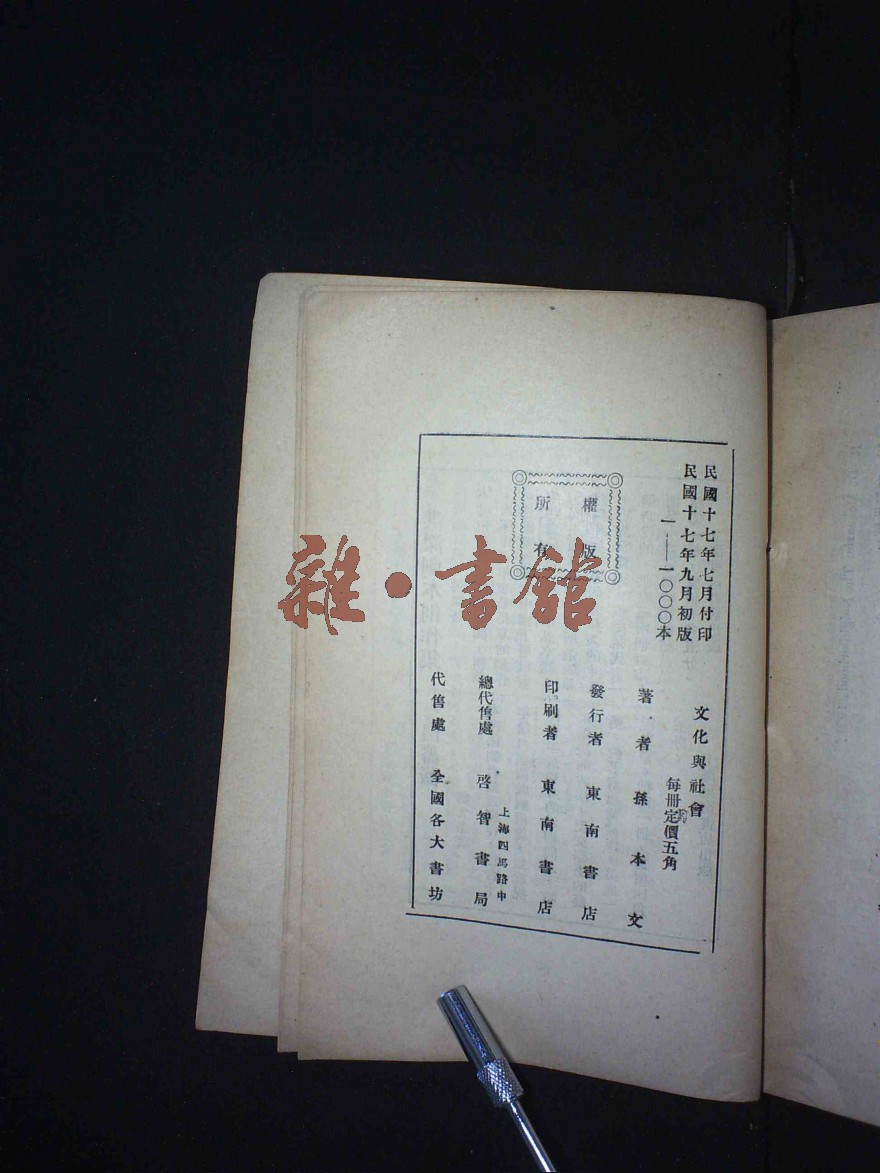 民國十七年七月付印
民國十七年九月初版
一——一〇〇〇本
文化與社會
每冊定價五角
著者 孫本文
發行者 東南書店
印刷者 東南書店
上海四馬路中
總代售處 啓智書局
代售處 全國各大書坊
權版
所有
雜·書館